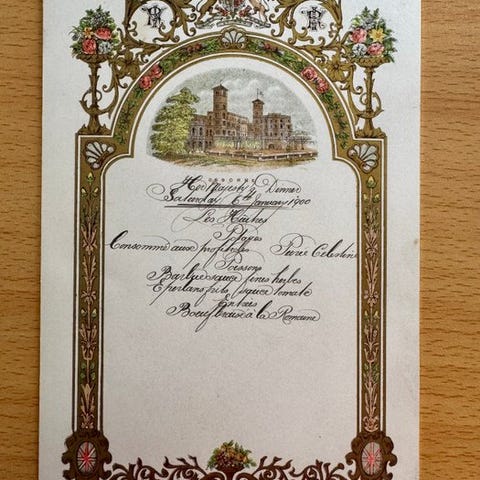 OSBORNE
Her Majesty's Dinner
Saturday 6th January 1900
Les Huîtres
Potages
Consommé aux profiteroles Purée Celestine
Poissons
Barbue sauce fines herbes
Eperlans frits, sauce tomate
Entrées
Boeuf braisé à la Romaine